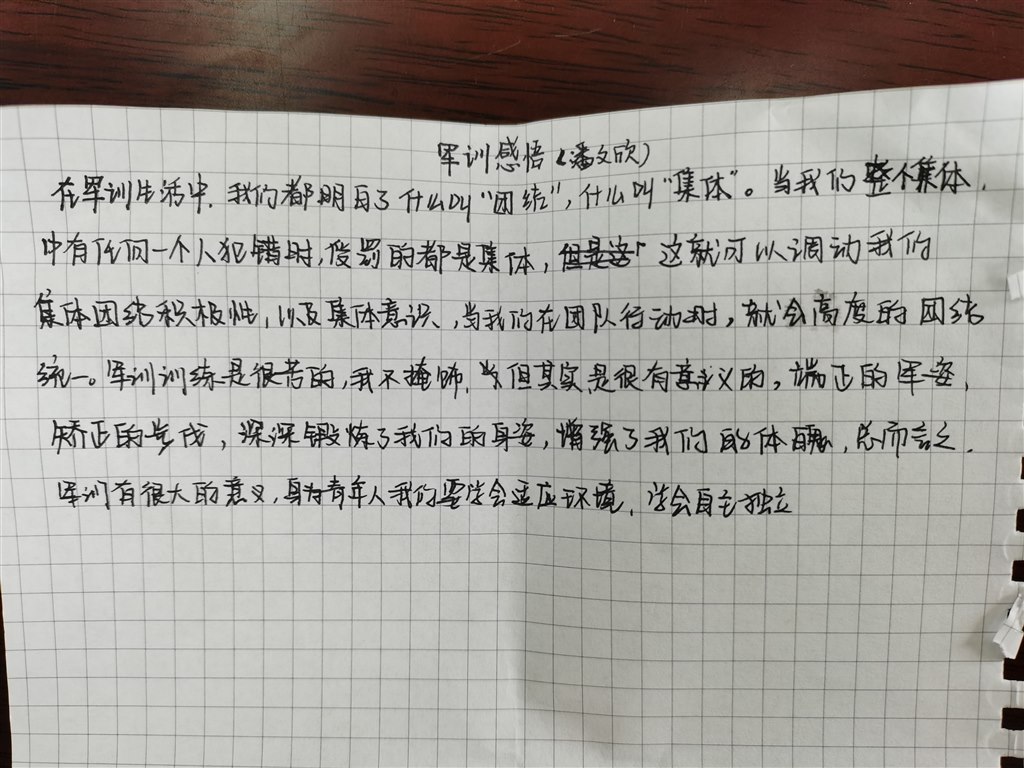 军训感悟(潘文欣)
在军训生活中,我们都明白了什么叫“团结”,什么叫“集体”。当我们整个集体,
中有任何一个人犯错时,受罚的都是集体,这就可以调动我们
集体团结积极性,以及集体意识、当我们在团队行动时,就会高度的团结
统一。军训训练是很苦的,我不掩饰,但其实是很有意义的,端正的军姿,
矫正的步伐,深深锻炼了我们的身姿,增强了我们的体魄,总而言之,
军训有很大的意义,身为青年人我们要学会适应环境,学会自主独立